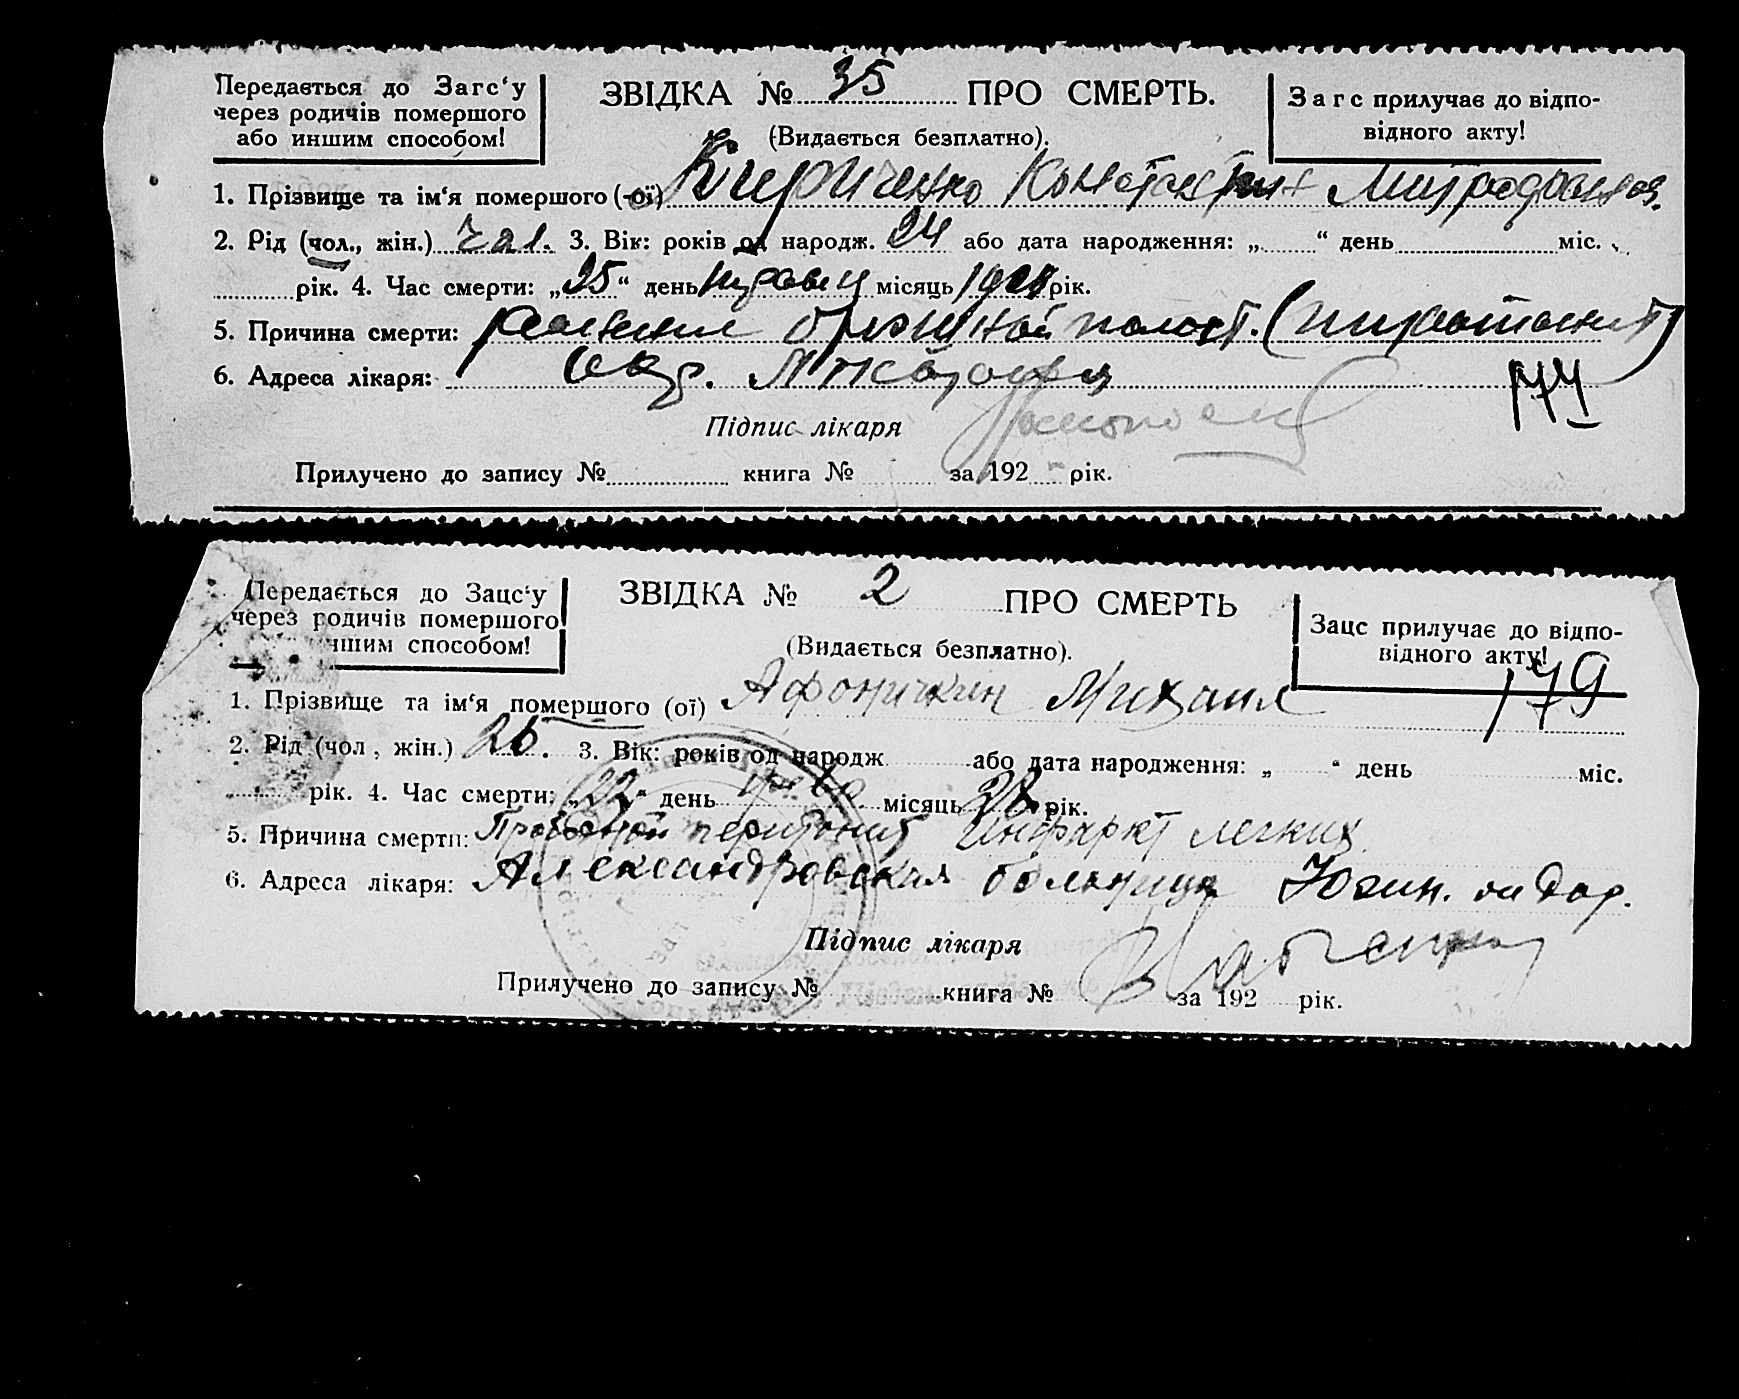 Передається до Загс'у
через родичів помершого
або иншим способом!
ЗВІДКА № 35 ПРО СМЕРТЬ.
(Видається безплатно).
Загс прилучає до відпо-
відного акту!
1. Прізвище та ім'я помершого (-ої) Кириченко Константин Митрофанов.
2. Рід (чол., жін.) чол. 3. Вік: років од народж. 24 або дата народження: „ “ день міс.
рік. 4. Час смерти: „25“ день місяць 1928 рік.
5. Причина смерти: ранение брюшной полост. (
6. Адреса лікаря:
174
Підпис лікаря
Прилучено до запису № книга № за 192 рік.
Передається до Зацс'у
через родичів помершого
иншим способом!
ЗВІДКА № 2 ПРО СМЕРТЬ
(Видається безплатно).
Зацс прилучає до відпо-
відного акту!
179
1. Прізвище та ім'я помершого (ої) Афоничкин Михаил
2. Рід (чол, жін.) 26. 3. Вік: років од народж або дата народження: „ “ день міс.
рік. 4. Час смерти: „22“ день місяць 28 рік.
5. Причина смерти: перитонит Инфаркт легких
6. Адреса лікаря: Александровская больница Южн. жел дор.
Підпис лікаря
Прилучено до запису № книга № за 192 рік.